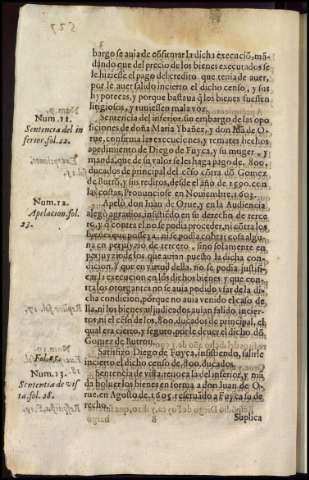 bargo se auia de cõfirmar la dicha execuciõ, mã-
dando que del precio de los bienes executados se
le hiziesse el pago del credito que tenia de auer,
por le auer salido incierto el dicho censo, y sus
hypotecas, y porque bastaua q̃ los bienes fuessen
litigiosos, y tuuiessen mala voz.
Num. 11.
Sentencia del in
ferior. fol. 22.
Sentencia del inferior, sin embargo de las opo
siciones de doña Maria Ybañez, y don Iuã de O-
rue, confirma las execuciones, y remates hechos
a pedimiento de Diego de Fuyca, y su muger, y
manda, que de su valor se les haga pago de. 800.
ducados de principal del cẽso cõtra dõ Gomez
de Butrõ, y sus reditos, desde el año de 1590. con
las costas, Pronunciose en Nouiembre, 1603.
Num. 12.
Apelacion. fol.
23.
Apelò don Iuan de Orue, y en la Audiencia
alegò agrauios, insistiẽdo en su derecho de terce
ro, y q̃ contra el no se podia proceder, ni cõtra los
bienes que posseia, ni se podia cobrar cosa algu-
na en perjuyzio de tercero, sino solamente en
perjuyzio de los que auian puesto la dicha con-
dicion, y que en virtud della, no se podia justifi-
car la execucion en los dichos bienes y que con-
tra los otorgantes no se auia podido vsar de la di
cha condicion, porque no auia venido el caso de
lla, ni los bienes adjudicados auian salido, incier-
tos ni el cẽso de los. 800. ducados de principal, el
qual era cierto, y seguro, por le deuer el dicho dõ
Gomez de Butron.
Fol. 25.
Satisfizo Diego de Fuyca, insistiendo, salirle
incierto el dicho censo de. 800. ducados.
Num. 13.
Sentencia de vis
ta. fol. 28.
Sentencia de vista, reuoca la del inferior, y mã
da boluer los bienes en forma a don Iuan de O-
rue, en Agosto de 1605. reseruãdo a Fuyca su de
recho.
Suplica